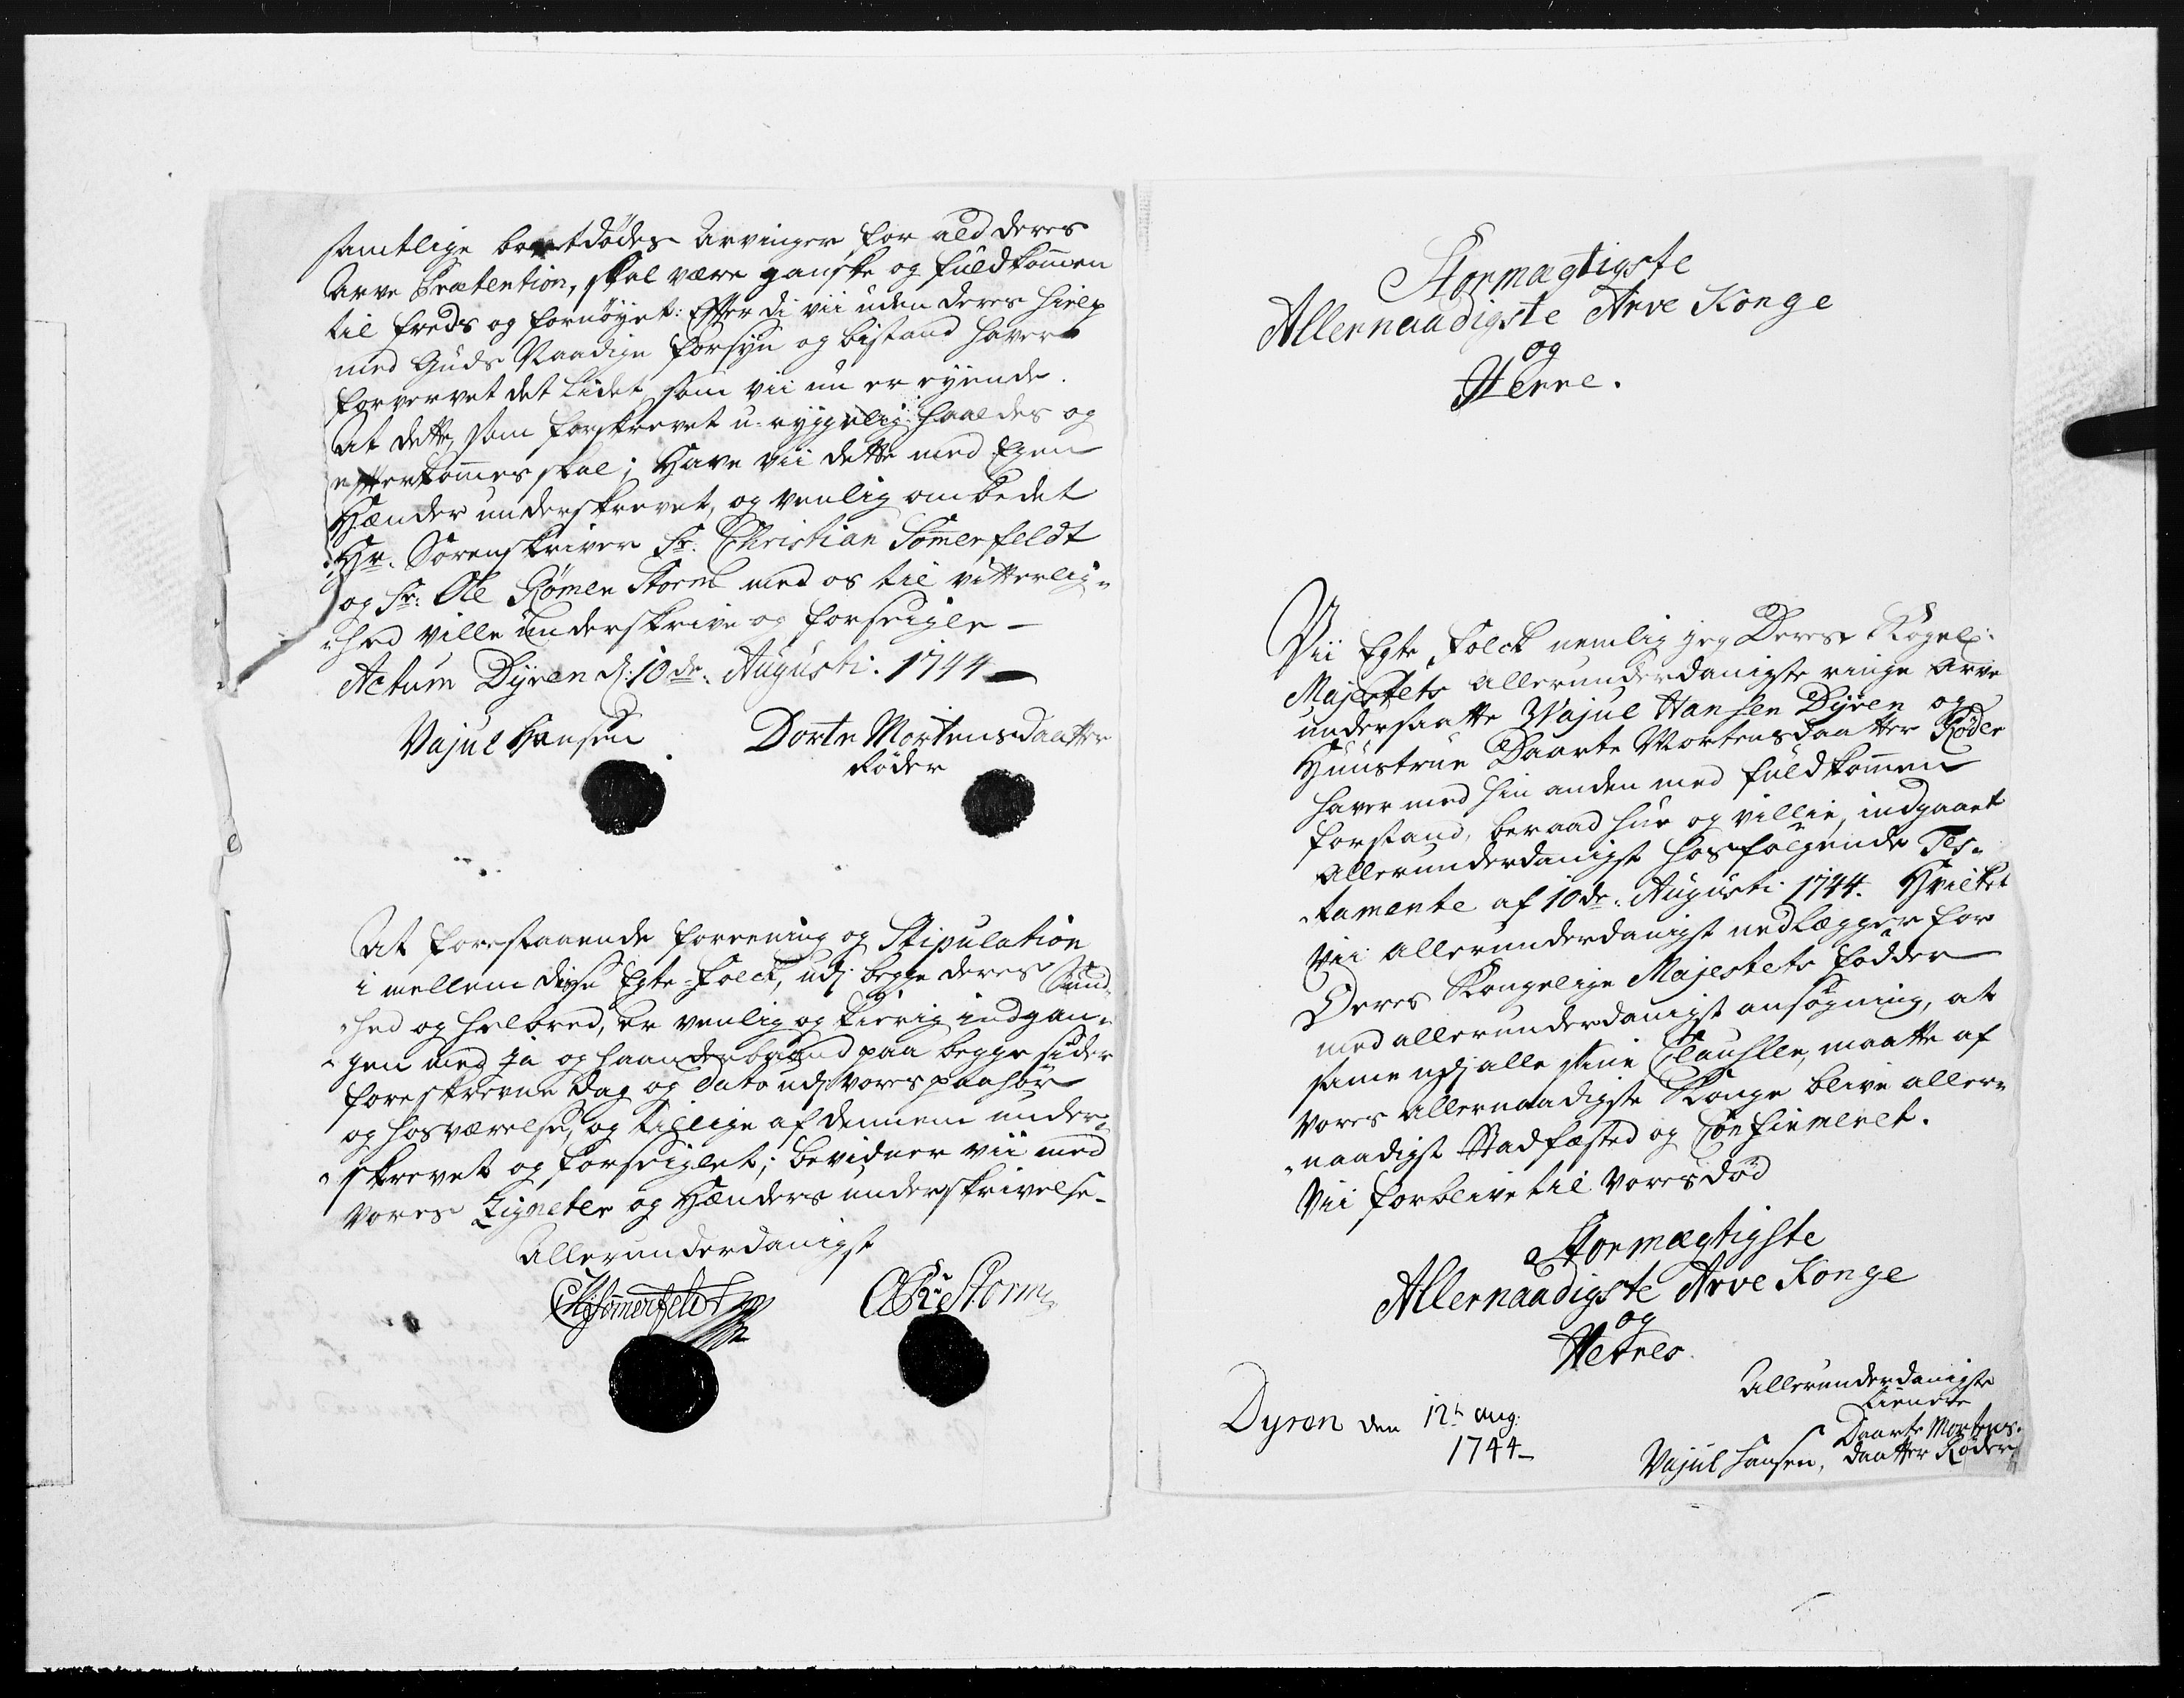 samtlige bortdødes Arvinger for ald deres
Arve Prætention, skal være ganske og fuldkommen
til freds og fornøyet: Efter di vii uden deres hielp
med Guds Naadige forsyn og bistand haver
forhvervet det Lidet som vii nu er eyende.
At dette, som forskrevet u-ryggelig haaldes og
efterkommes skal; Have vii dette med Egen
Hænder underskrevet, og venlig ombedet
Hr. Sorenskriver Sr. Christian Sommerfeldt
og Sr: Ole Rømer Storm med os til vitterlig-
hed ville underskrive og forseigle -
Actum Dyren d: 10de Augusti. 1744
Vajul Hansen Dorte Mortensdaatter
Røder
At forestaaende forrening og Stipulation
i mellem disse Egte-folck, udj begge deres Sund-
hed og helbred, er venlig og kierlig indgan-
gen med ja og haanderbaand paa begge sider
foreskrevne dag og dato udj vores paahør
og hosværelse, og tillige af dennem under-
skrevet og forseiglet; bevidner vii med
vores Zigneter og Hænders underskrivelse.
Allerunderdanigst
CHSommerfeldt ORStorm
Stormægtigste
Allernaadigste Arve Konge
og
Herre.
Vii Egte folck nemlig jeg Deres Kogel:
Majestets allerunderdanigste ringe arve
undersaatte Wajul Hansen Dyren og
Huustrue Daarte Mortensdaatter Røder
haver med hin anden med fuldkommen
forstand, beraad hue og villie, indgaaet
allerunderdanigst hosfølgende Tes-
tamente af 10de Augusti 1744. Hvilket
vii allerunderdanigst nedlægger for
Deres Kongelige Majestets fødder
med allerunderdanigst ansøgning, at
samme udj alle sine Clausller, maatte af
vores allernaadigste Konge blive aller-
naadigst Stadfæsted og Confirmeret.
Vii forblive til vores død
Stormægtigste
Allernaadigste Arve Konge
og
Herres
Allerunderdanigste
tienere
Dyren den 12te Aug:
1744
Daarte Mortens-
Vajul Hansen, daatter Røder